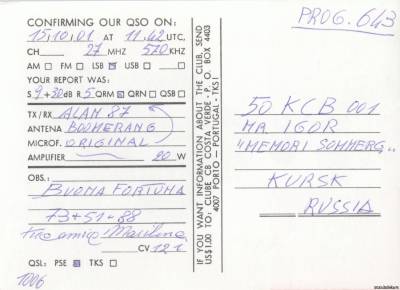 CONFIRMING OUR QSO ON:
15,10,01 AT 11.42 UTC,
CH 27 MHZ 570 KHZ
AM FM LSB USB
YOUR REPORT WAS:
S 9+30dB R 5 QRM QRN QSB
TX/RX ALAN 87
ANTENA BOOMERANG
MICROF. ORIGINAL
AMPLIFIER 20 W
OBS.:
BUONA FORTUNA
73+51-88
CV 121
QSL: PSE TKS
1006
IF YOU WANT INFORMATION ABOUT THE CLUB, SEND
US$1.00 TO: CLUBE CB COSTA VERDE - P. O. BOX 4403
4007 PORTO - PORTUGAL - TKS!
PROG. 643
50 KCB 001
MR IGOR
"MEMORI SOMMERG.,,
KURSK
RUSSIA